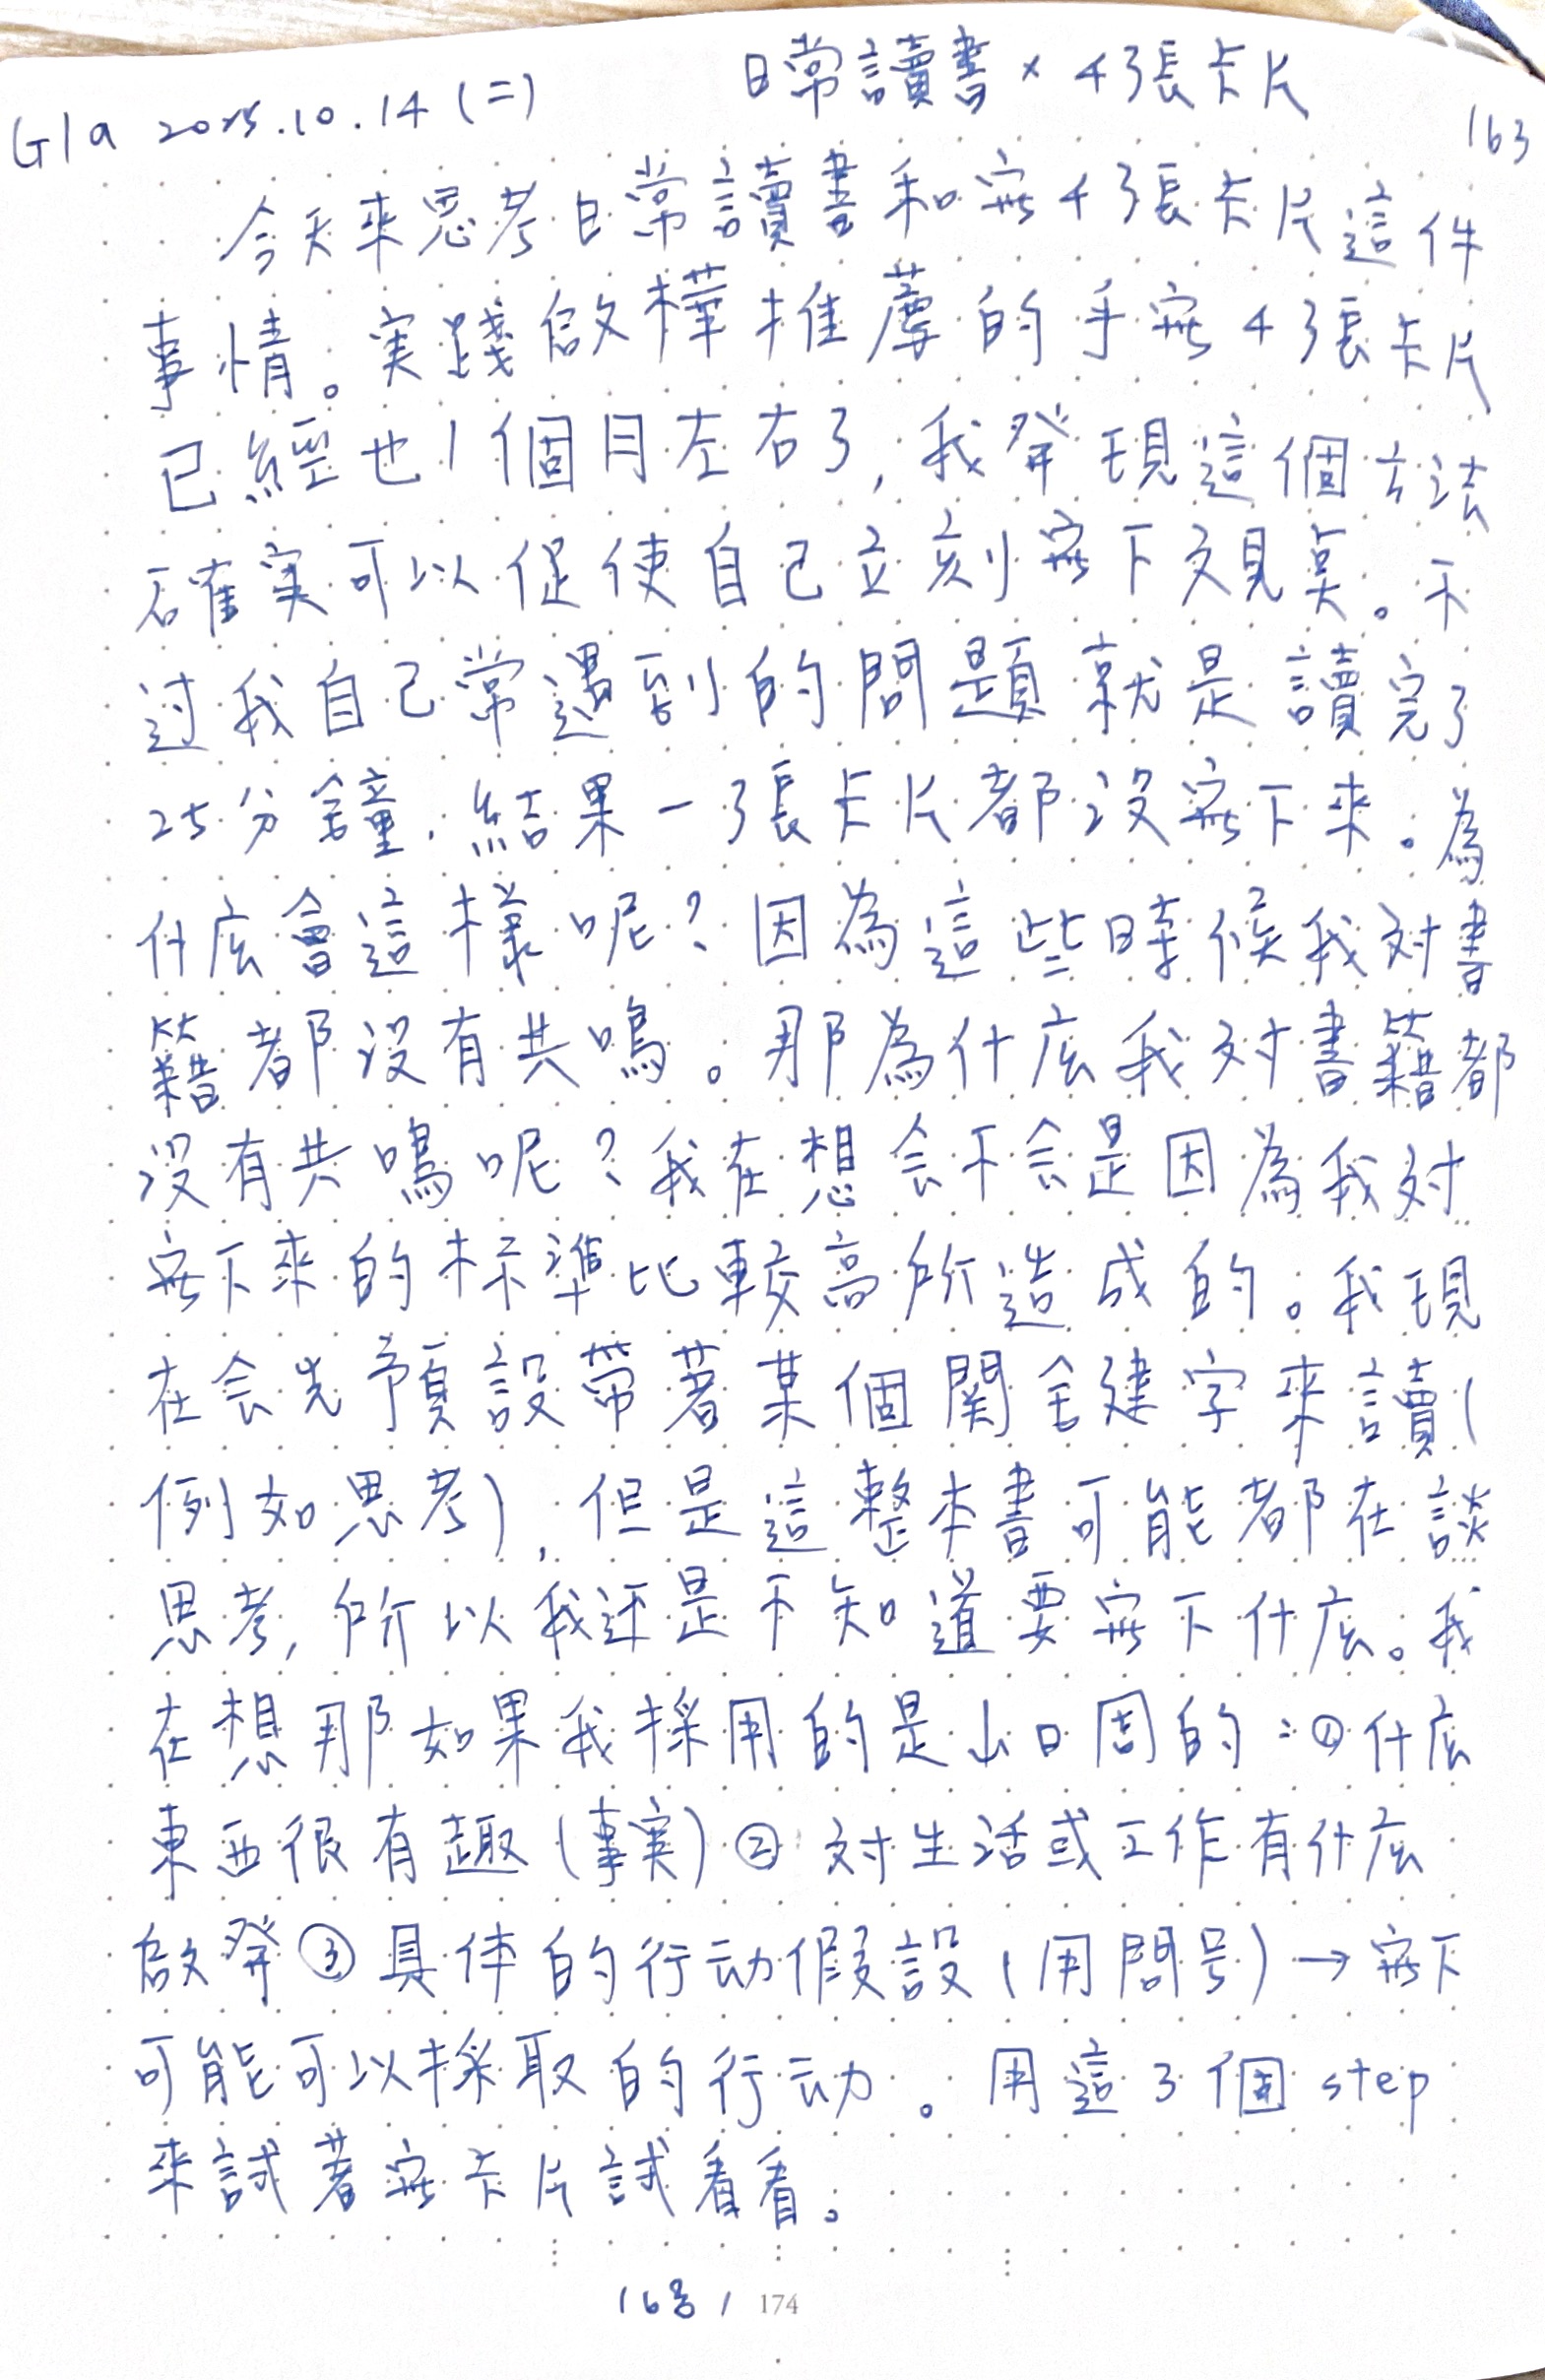 日常讀書 × 4張卡片
G1a 2025.10.14 (二)
163
今天來思考日常讀書和寫4張卡片這件
事情。実踐啟樺推薦的手寫4張卡片
已經也1個月左右了,我発現這個方法
確実可以促使自己立刻寫下文見点。不
过我自己常遇到的問題就是讀完了
25分鐘,結果一張卡片都沒寫下來。為
什広會這樣呢?因為這些時候我对書
籍都沒有共鳴。那為什広我对書籍都
沒有共鳴呢?我在想会不会是因為我对
寫下來的标準比較高所造成的。我現
在会先預設帶著某個関鍵字來讀(
例如思考),但是這整本書可能都在談
思考,所以我还是不知道要寫下什広。我
在想那如果我採用的是山口周的:①什広
東西很有趣(事実)②对生活或工作有什広
啟発③具体的行动假設(用問号)→寫下
可能可以採取的行动。用這3個step
來試著寫卡片試看看。
163/174